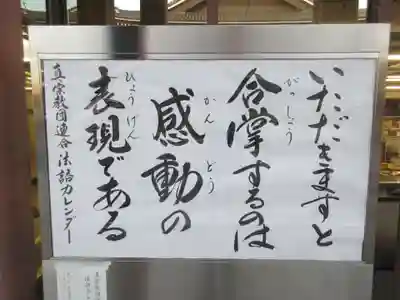 いただきますと
合掌するのは
がっしょう
感動の
かんどう
表現である
ひょうげん
真宗教団連合法語カレンダー